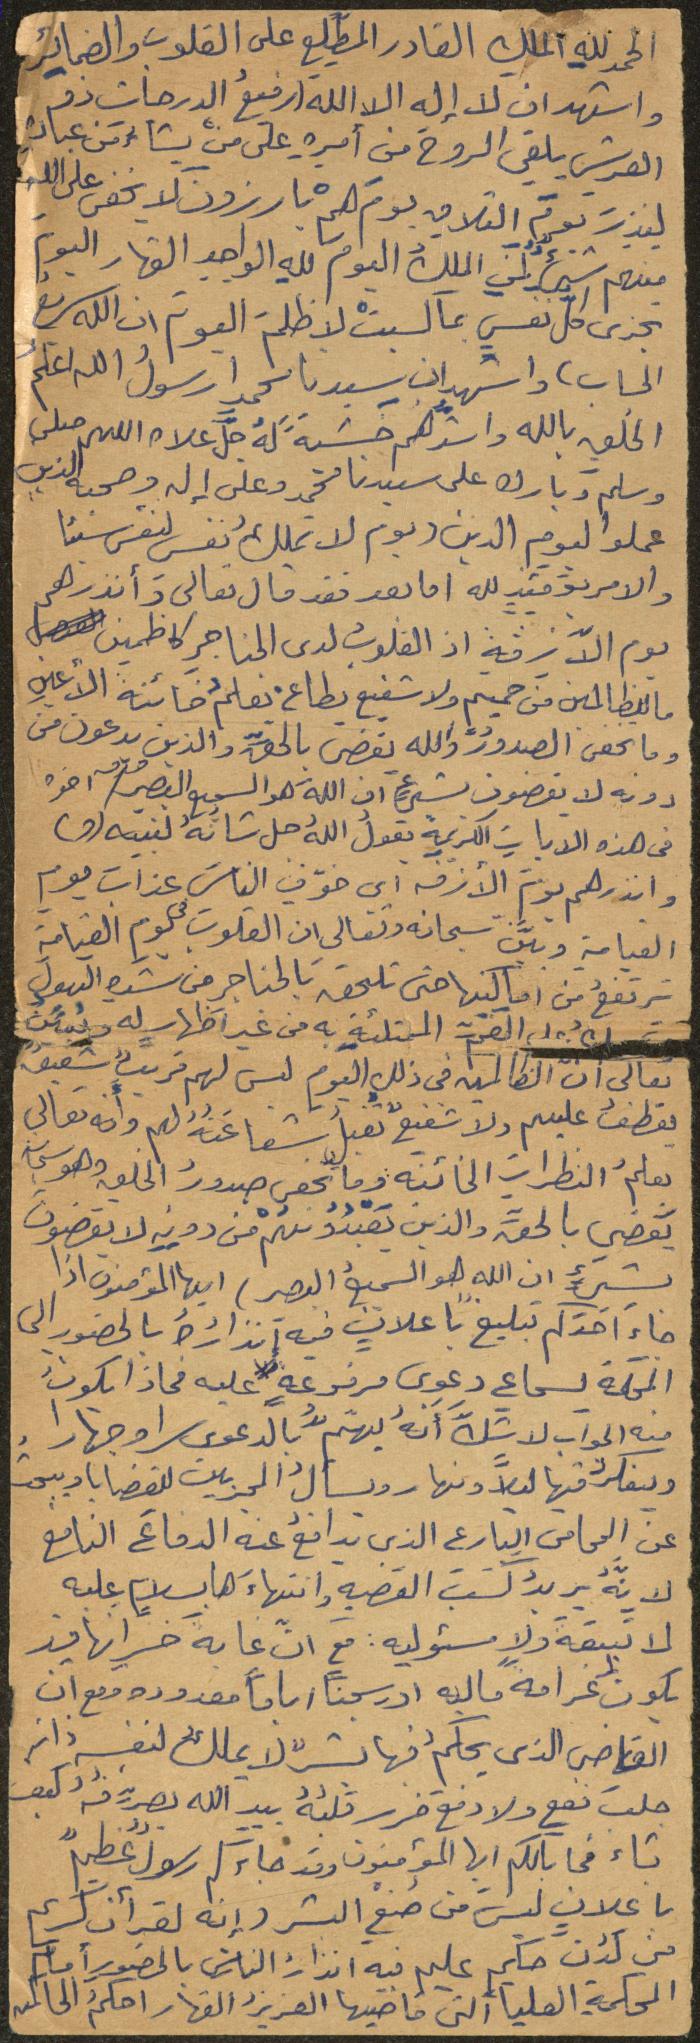 الحمد لله الملك القادر المطّلع على القلوب والضمائر
واشهد ان لا إله الا الله (رفيعُ الدرجات ذو
العرش يلقي الروحَ من أمرِهِ على منْ يشاءُ مِن عبادِه
لينذرَ يومَ التلاق يومَ همْ بارزونَ لا يخفى على اللهِ
منهم شيءٌ لمنِ الملكُ اليومَ للهِ الواحِدِ القهار اليومَ
تجزى كلُّ نفسٍ بما كسبتْ لا ظلمَ اليومَ ان اللهَ سريعُ
الحساب) واشهد ان سيدنا محمدا رسولُ الله اعلمُ
الخلقِ بالله واشدُّهُم خشيةً لهُ جلَّ علاه اللهم صلي
وسلم وبارك على سيدنا محمدٍ وعلى إله وصحبه الذين
عملوا ليوم الدين (يوم لا تملك نفس لنفس شيئا
والامر يومئِذٍ لله اما بعد فقد قال تعالى وَأنذرهم
يوم الآزِفَةِ اذ القلوبُ لدى الحناجرِ كاظمين
ما للظالمين من حميمٍ ولا شفيع يطاع يعلمُ خائنةَ الأعينِ
وما تخفى الصدورُ واللهُ يقضى بالحقِّ والذين يدعون من
دونه لا يقضون بشيءٍ ان اللهَ هو السميع البصير) اخوه
فى هذه الاياتِ الكريمةِ يقولُ اللهُ جل شأنُهُ لنبيه (ص)
وانذرهم يومَ الأزفه اى خوِّفِ الناسَ عذابَ يومِ
القيامةِ وبيَّن سبحانه وتعالى ان القلوبَ في يوم القيامةِ
ترتفعُ من اماكنِها حتى تلحقَ بالحناجر من شدةِ الهولِ
الغمِّ الممتلئةِ به من غير اظهارٍ له ويبيّنُ
تعالى أنَّ الظالمين فى ذلك اليوم ليس لهم قريبٌ شفيقٌ
يعطفُ عليهم ولا شفيعٌ تُقبلُ شفاعَتُهُ لهم وأنه تعالى
يعلمُ النظراتِ الخائنه وما تخفى صدورُ الخلقِ وهو سبحانه
يَقضي بالحقِّ والذين يَعْبُدُونَهُمْ مِن دونِهِ لا يقضونَ
بشيءٍ ان الله هو السميعُ البصير) ايها المؤمنون اذا
جاءَ احَدَكم تبليغٌ باعلانٍ فيهِ إنذارُهُ بالحضورِ الى
المحكمةِ لسماعِ دعوى مرفوعةٍ عليه فماذا يكونُ
منه الجواب لا شكَّ أنهُ يهتمُّ بالدعوى سرا وجهارا
ويتفكرُ فيها ليلاً ونهار ويسألُ المجربين للقضايا ويبحثُ
عن المحامى البارع الذى يدافعُ عنه الدفاعَ النافع
لأنَّهُ يريدُ كسَبَ القضيه وانتهاءَها بسلامٍ عليه
لا تبعةَ ولا مسئوليه: مَعَ انّ غايةَ خسرانها قد
يكونُ غرامةً ماليه او سجناً اياماً معدوده ومع ان
القاضي الذى يحكمُ فيها بشرٌ لا يملك لنفسه ذاته
جلبَ نفعٍ ولا دفع ضرر قلبُهُ بيدِ الله يصرِّفُه كيف
شاء فما بالكم ايها المؤمنون وقد جاءَكم رسولٌ عظيمٌ
باعلانٍ ليسَ من صُنعِ البشر (إنه لقرآن كريم
من لَدُنْ حكيمٍ عليم فيه انذارُ الناسِ بالحضورِ أمامَ
المحكمةِ العليا التى قاضيها العزيزُ القهار احكمُ الحاكمين